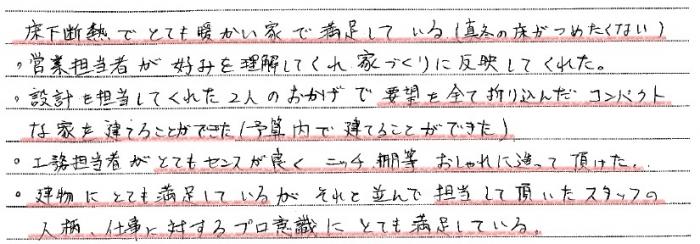 床下断熱でとても暖かい家で満足している(真冬の床がつめたくない)
・営業担当者が好みを理解してくれ家づくりに反映してくれた。
・設計を担当してくれた2人のおかげで要望を全て折り込んだコンパクト
な家を建てることができた(予算内で建てることができた)
・工務担当者がとてもセンスが良くニッチ、棚等おしゃれに造って頂けた。
・建物にとても満足しているがそれと並んで担当して頂いたスタッフの
人柄、仕事に対するプロ意識にとても満足している。